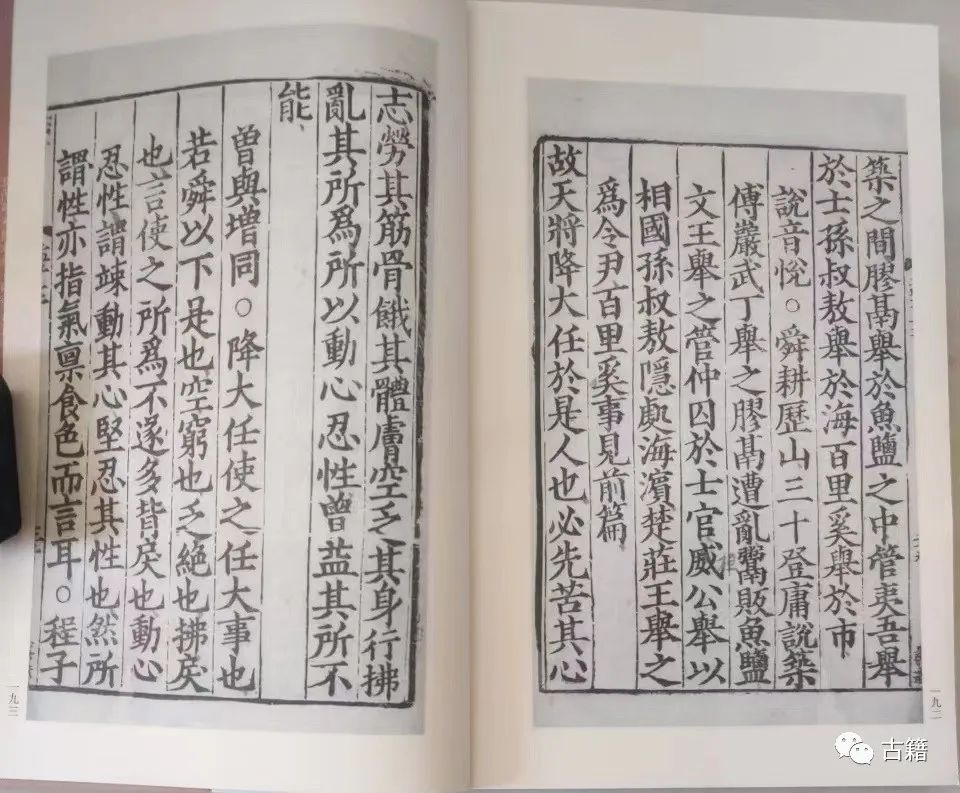 築之間膠鬲舉於魚鹽之中管夷吾舉
於士孫叔敖舉於海百里奚舉於市
說音悅○舜耕歷山三十登庸說築
傅巖武丁舉之膠鬲遭亂鬻販魚鹽
文王舉之管仲囚於士官威公舉以
相國孫叔敖隱處海濱楚莊王舉之
爲令尹百里奚事見前篇
故天將降大任於是人也必先苦其心
一九二
志勞其筋骨餓其體膚空乏其身行拂
亂其所爲所以動心忍性曾益其所不
能
曾與增同○降大任使之任大事也
若舜以下是也空窮也乏絕也拂戾
也言使之所爲不遂多背戾也動心
忍性謂竦動其心堅忍其性也然所
謂性亦指氣禀食色而言耳○程子
一九三
古籍